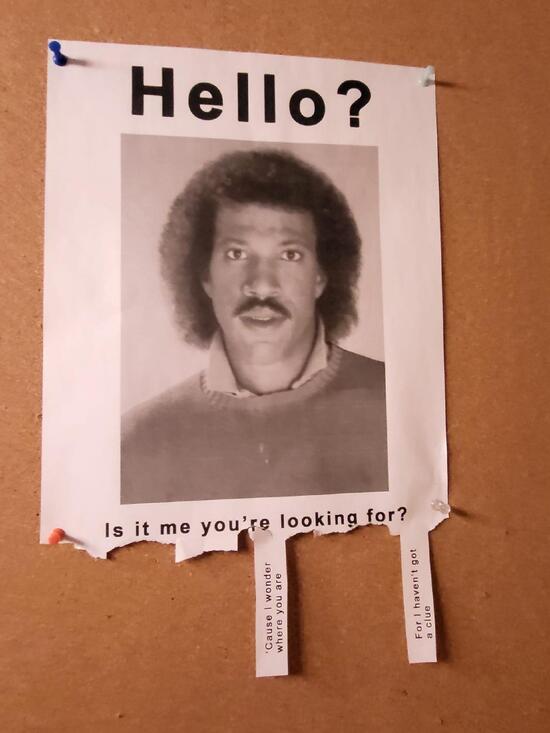 Hello?
Is it me you're looking for?
'Cause I wonder
where you are
For I haven't got
a clue